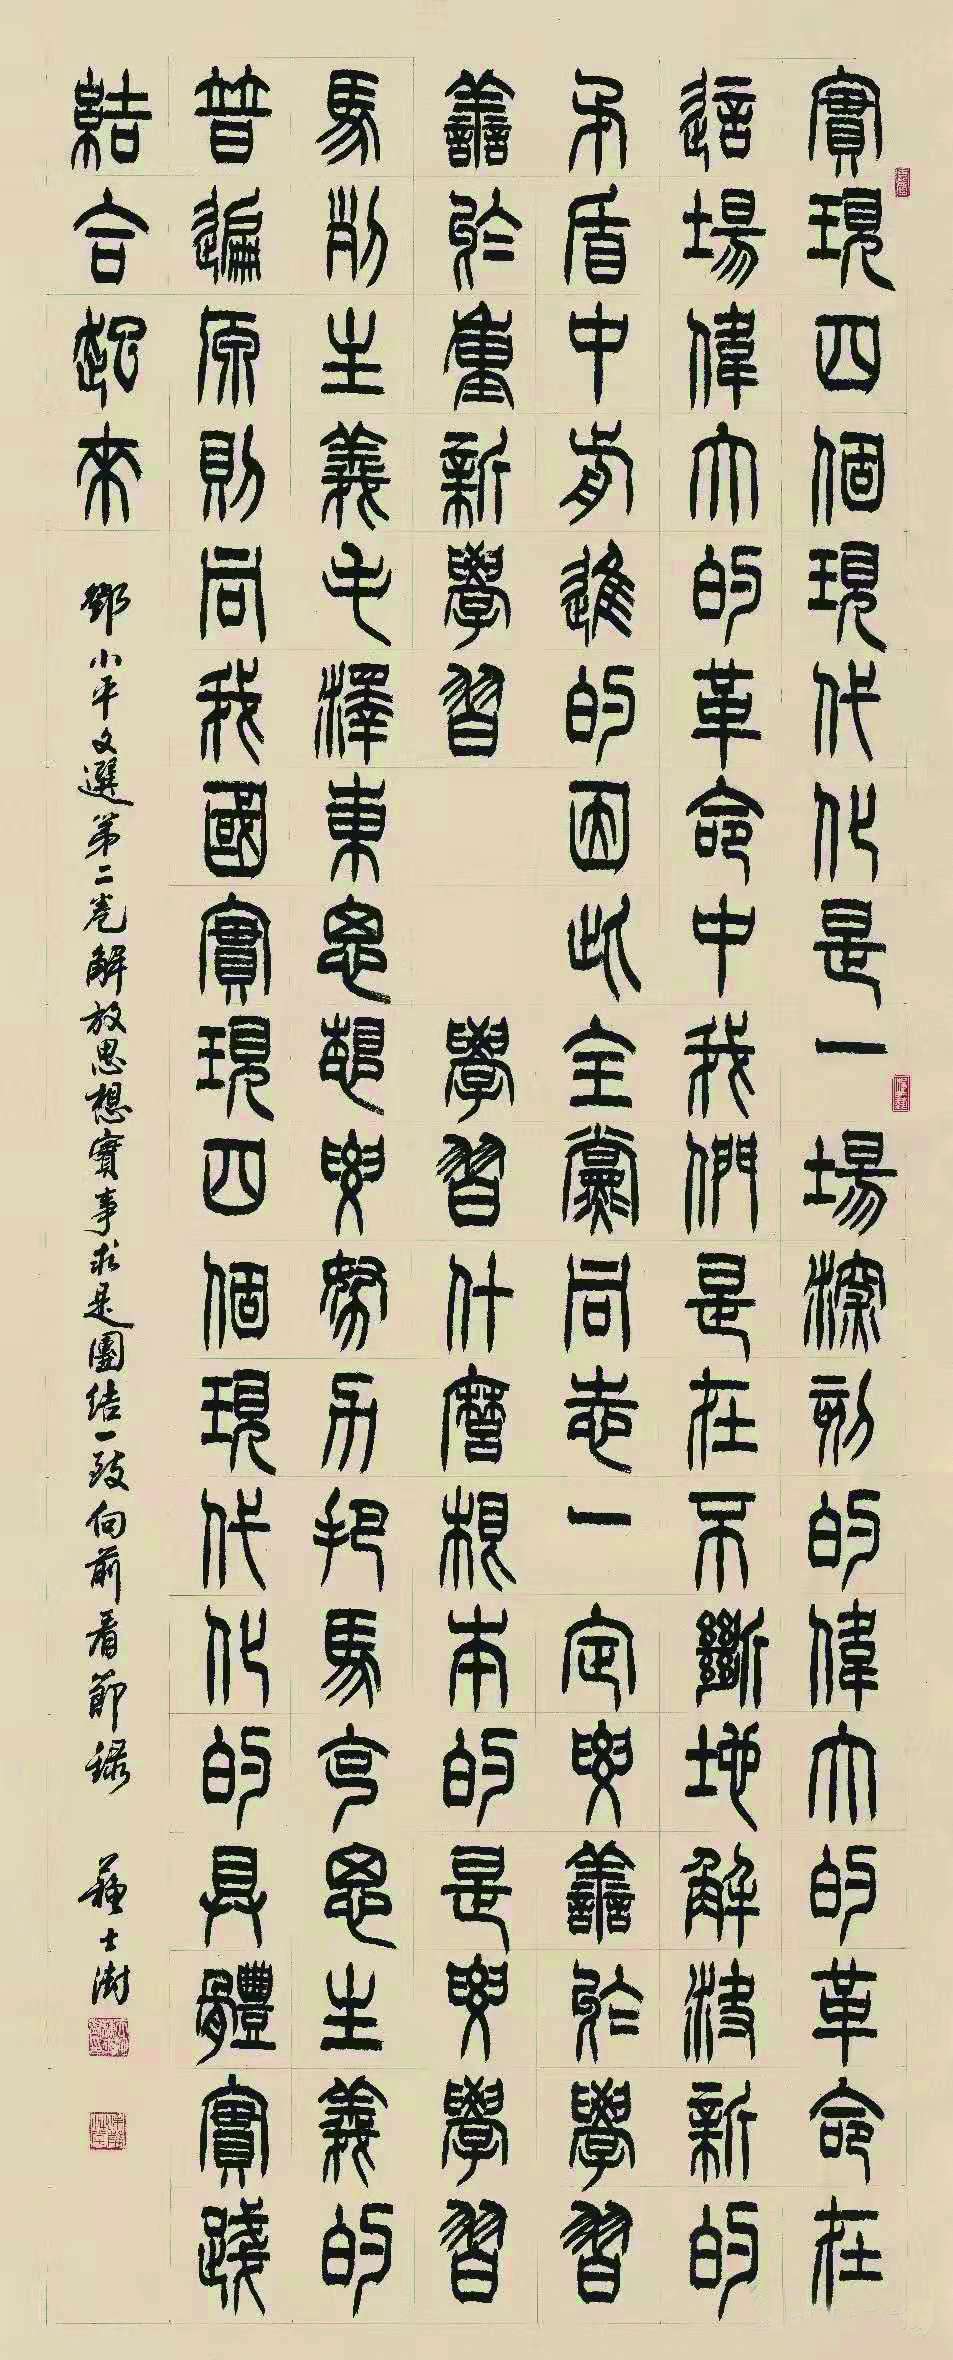 實現四個現代化是一場深刻的偉大的革命在
這場偉大的革命中我們是在不斷地解決新的
矛盾中前進的因此全黨同志一定要善於學習
善於重新學習　學習什麼根本的是要學習
馬列主義毛澤東思想要努力把馬克思主義的
普遍原則同我國實現四個現代化的具體實踐
結合起來
鄧小平文選第二卷解放思想實事求是團結一致向前看節錄　蘇士澍